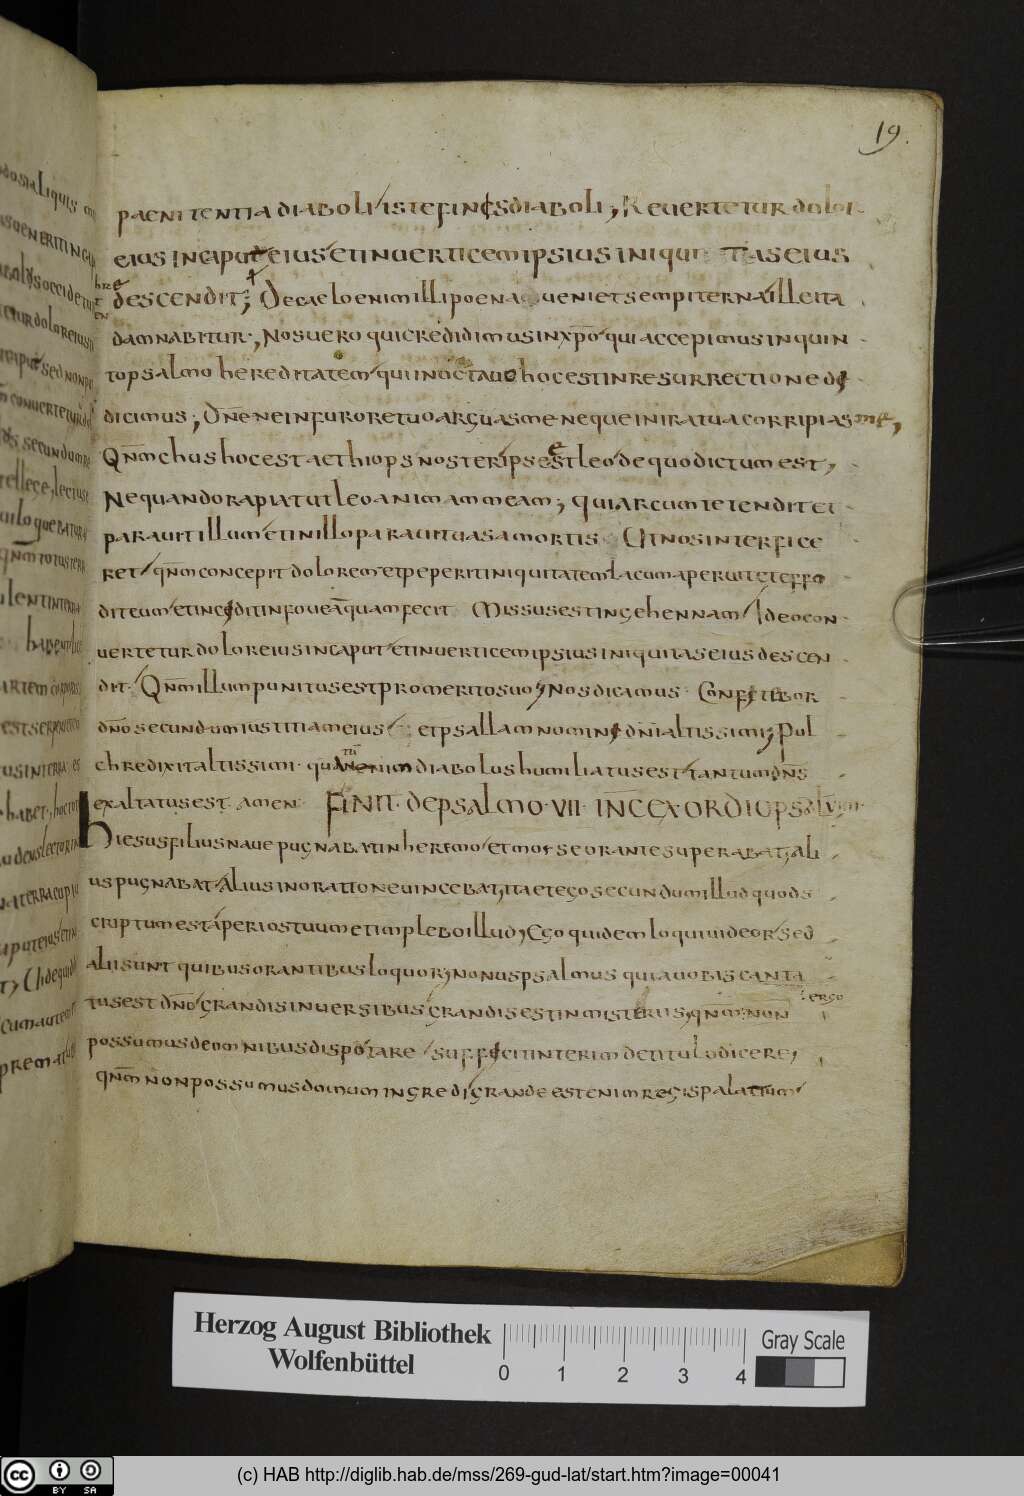 19.
paenitentia diaboli iste finis diaboli; Revertetur dolor
eius in caput eius et in uerticem ipsius iniquitas eius
descendit; De caelo enim illi poena ueniet sempiterna ille ita
damnabitur; Nos uero qui credidimus in xp̄o qui accepimus in quin
to psalmo hereditatem qui in octauo hoc est in resurrectione di
dicimus; Dn̄e ne in furore tuo arguas me neque in ira tua corripias me,
Qn̄m chus hoc est aethiops noster ipse est leo de quo dictum est,
Nequando rapiat ut leo animam meam; quia arcum tetendit et
parauit illum et in illo parauit uasa mortis Ut nos interfice
ret qn̄m concepit dolorem et peperit iniquitatem lacum aperuit et effo
dit eum et incidit in foueā quam fecit Missus est in gehennam Ideo con
uertetur dolor eius in caput et in uerticem ipsius iniquitas eius descen
dit. Qn̄m illum punitus est pro merito suo; Nos dicamus Confitebor
dn̄o secundum iustitiam eius et psallam nomini dn̄i altissimi; Pul
chre dixit altissimi. enim diabolus humiliatus est tantum dn̄s
exaltatus est amen FINIT. DE PSALMO VII INC EX ORDIO PSAL VIII
hiesus filius naue pugnabat in heremo et moise orante superabat; ali
us pugnabat Alius in oratione uincebat, ita et ego secundum illud quod s
criptum est aperi os tuum et implebo illud; Ego quidem loqui uideor sed
alii sunt quibus orantibus loquor; non uns psalmus qui a uobis canta
tus est dn̄o grandis in uersibus grandis est in misteriis, qn̄m ergo non
possumus de omnibus disputare sufficit interim de titulo dicere,
qn̄m non possumus domum ingredi grande est enim regis palatium
Herzog August Bibliothek
Wolfenbüttel
0 1 2 3 4
Gray Scale
cc BY SA
(c) HAB http://diglib.hab.de/mss/269-gud-lat/start.htm?image=00041